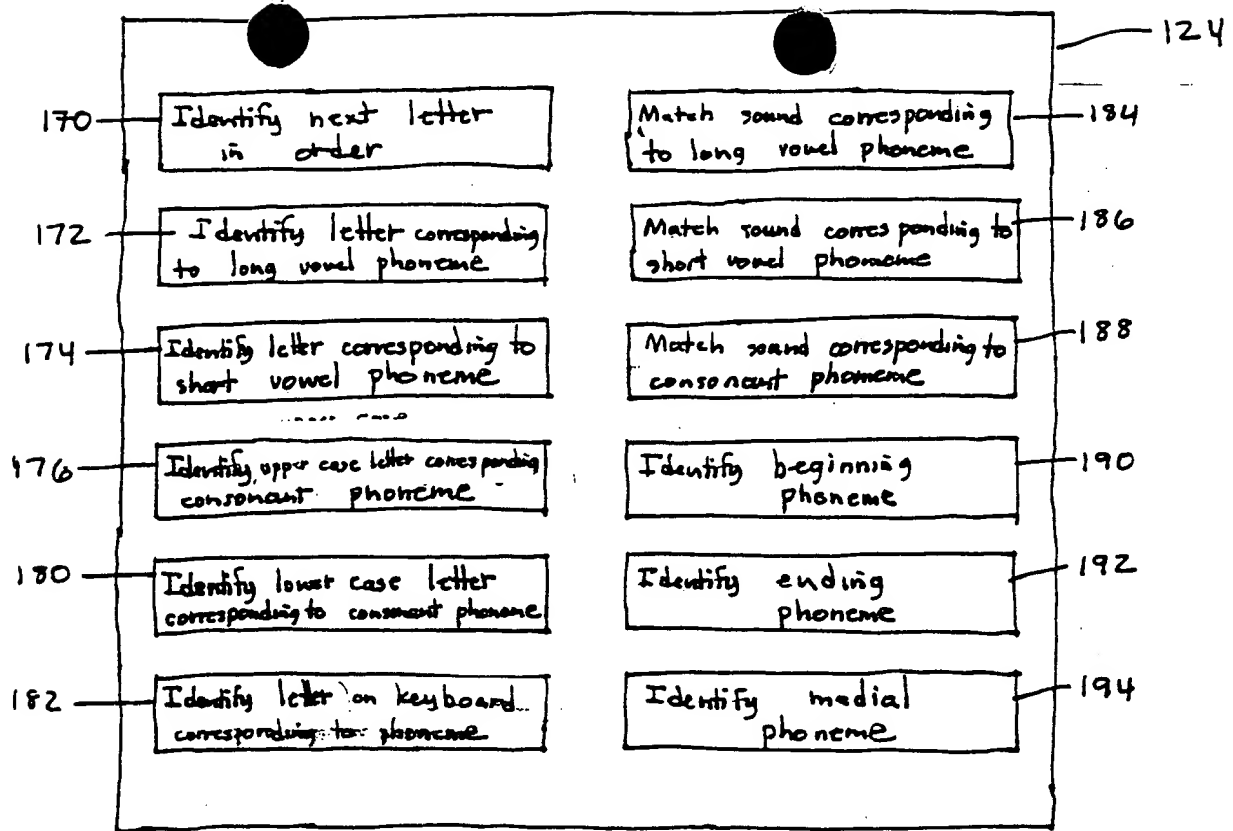 124
170
Identify next letter
in order
172
Identify letter corresponding
to long vowel phoneme
174
Identify letter corresponding to
short vowel phoneme
176
Identify upper case letter corresponding
consonant phoneme
180
Identify lower case letter
corresponding to consonant phoneme
182
Identify letter on keyboard
corresponding to phoneme
Match sound corresponding
to long vowel phoneme
184
Match sound corresponding to
short vowel phoneme
186
Match sound corresponding to
consonant phoneme
188
Identify beginning
phoneme
190
Identify ending
phoneme
192
Identify medial
phoneme
194